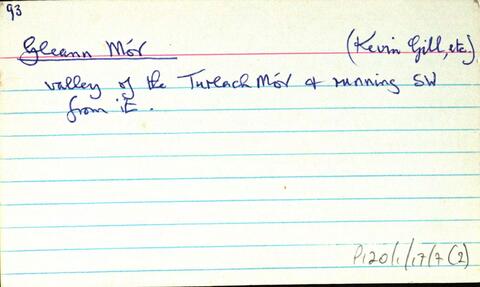 93
Gleann Mór (Kevin Gill, etc)
valley of the Turlach Mór & running SW
from it.
P120/1/17/7(2)